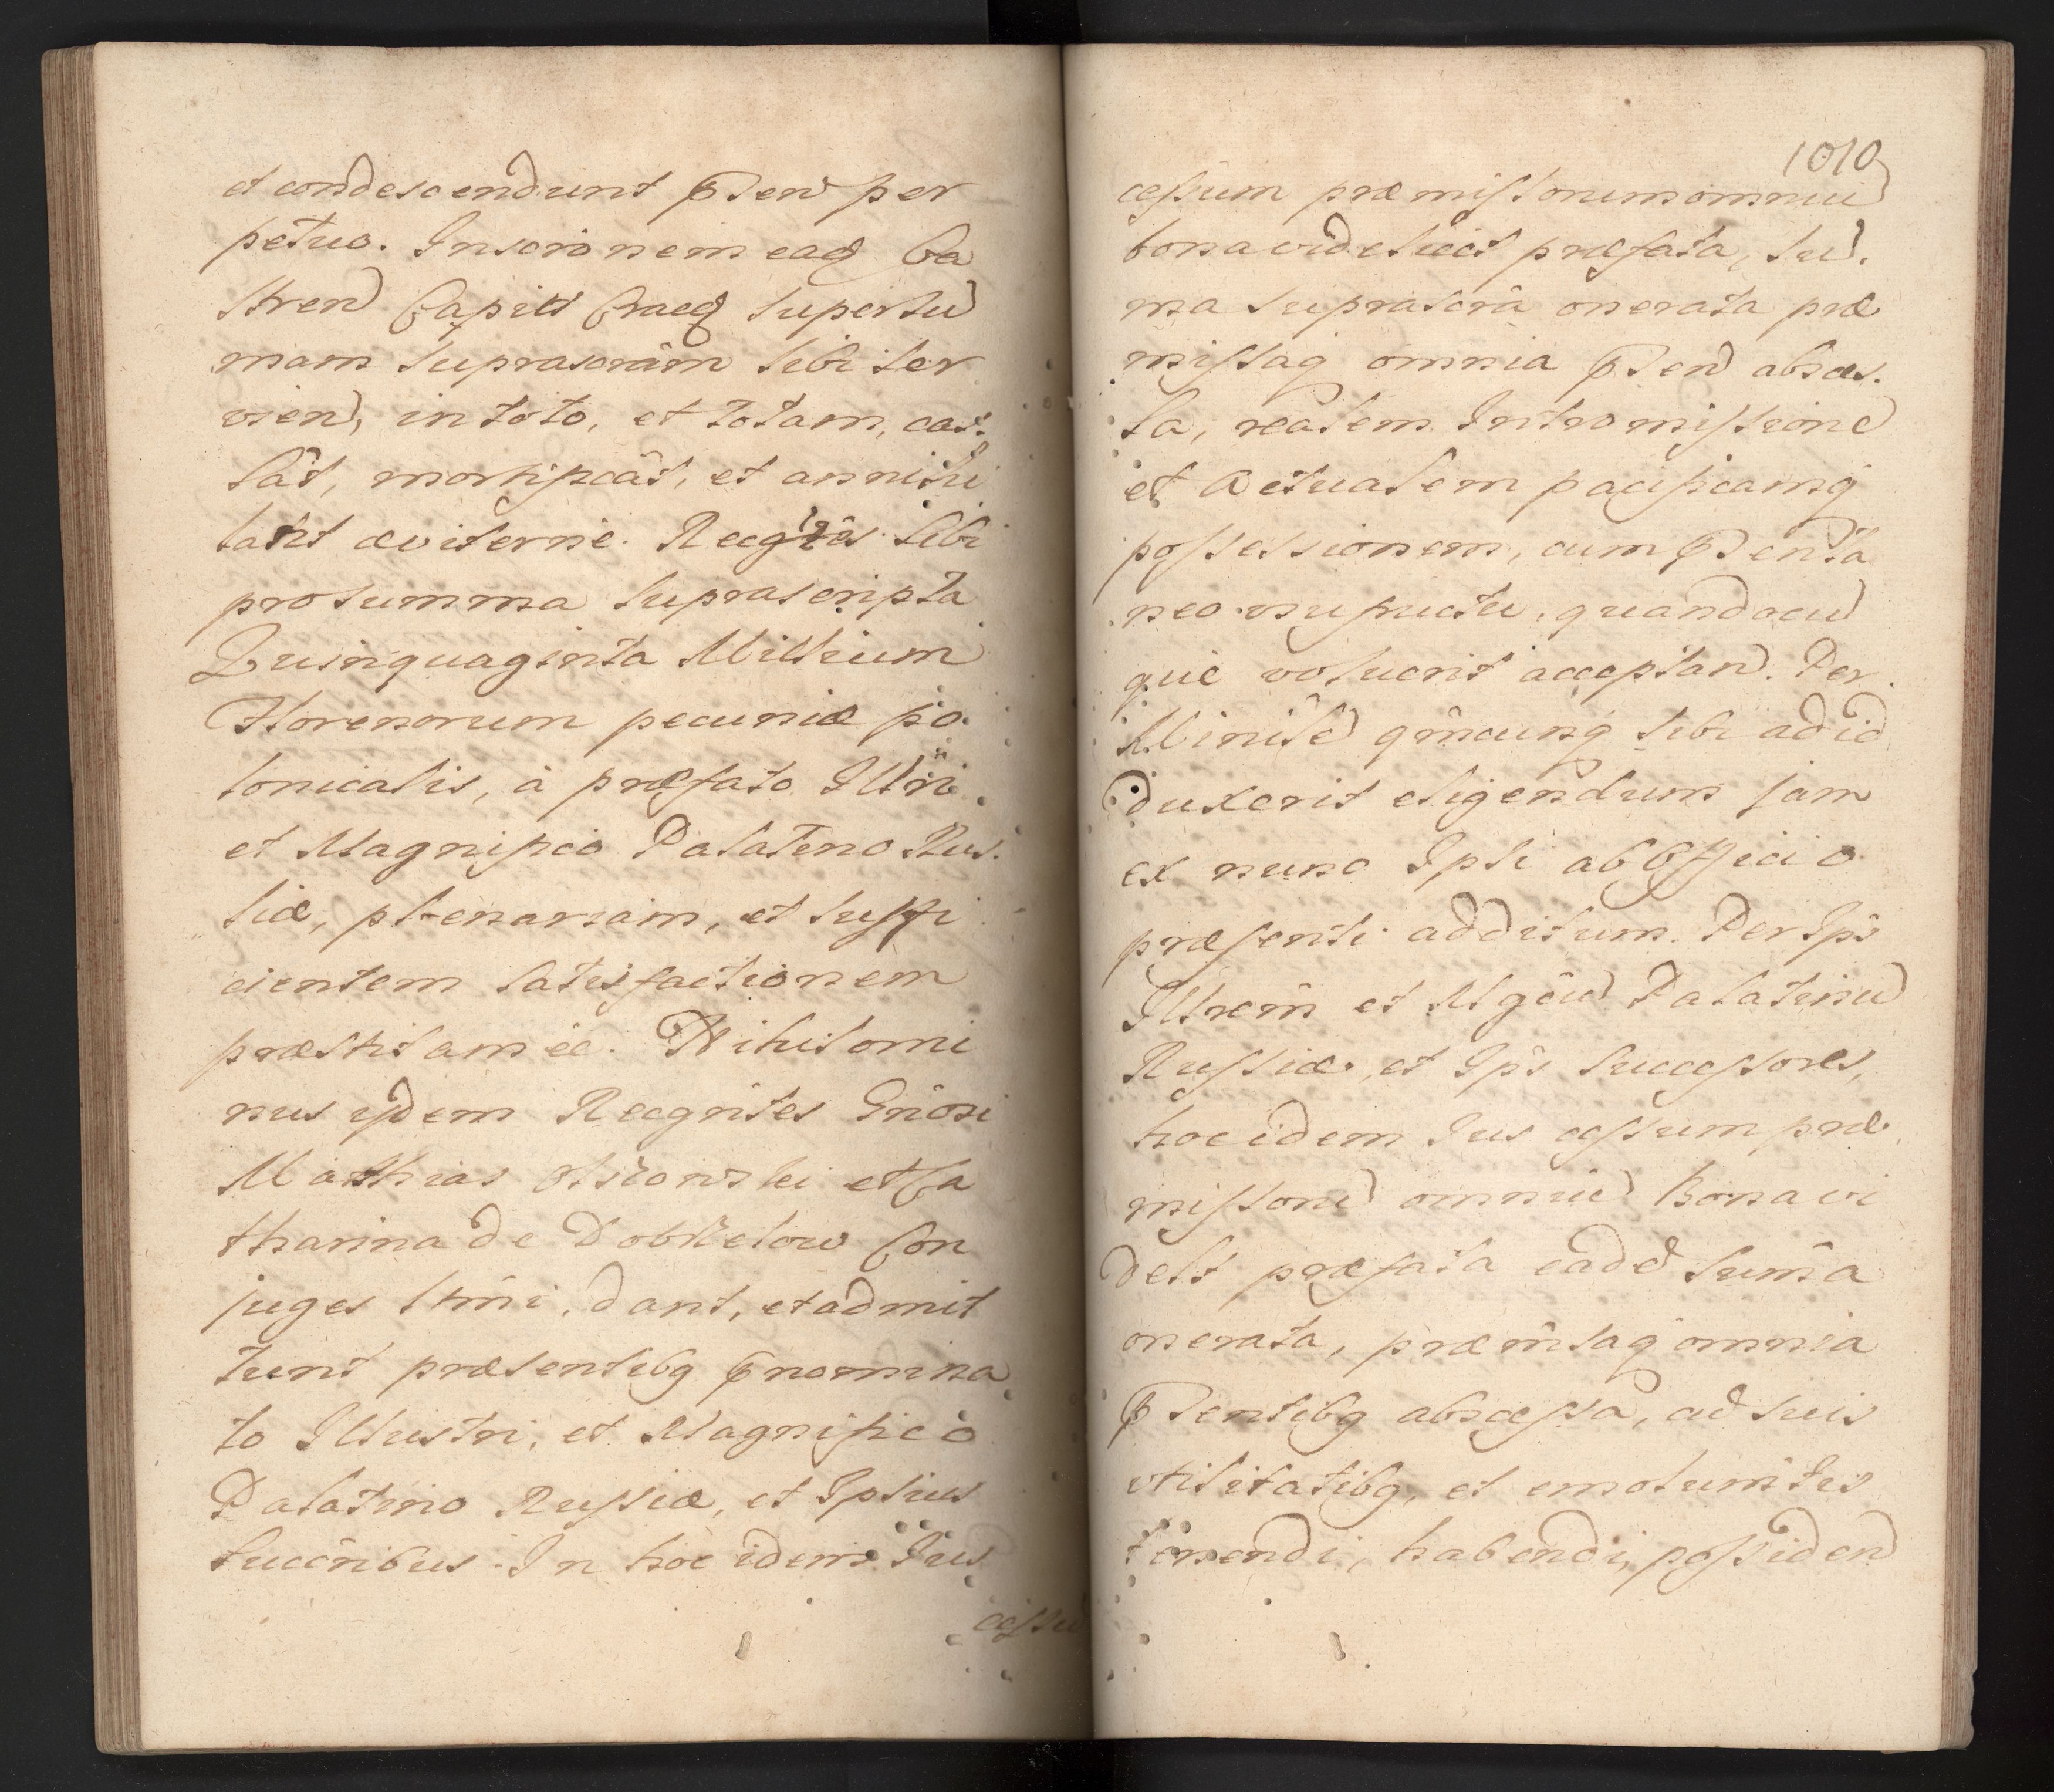 et condescendunt pñsen per
petuo. Inscrōnem eaq Ca
stren Capitl Cracq super su
mam suprascrām sibi ser
vien, in toto, et totam, cas:
sāt, mortificāt, et annihi
lant æviterne. Recgñtēs sibi
pro summa suprascripta
Quinquaginta Millium
Florenorum pecuniæ po
lonicalis, à præfato Illrī
et Magnifico Palatino Rus:
siæ, plenariam, et suffi
cientem satisfactionem
præstitam eē. Nihilomi
nus ijdem Recgnītes Gnōsi
Mathias et Ca
tharina de Dobszelow Con
juges ltīmi, dant, et admit
tunt præsentibq pnomina
to Illustri, et Magnifico
Palatino Russiæ, et Ipsius
succrībus. In hoc idem Ius
cessū
1010
cessum præmissorum omnīū
bona videlicet præfata, sū.
ma suprascrā onerata præ
missaq omnia pñsen absces.
sa, realem Intromissionē
et Actualem pacificamq
possessionem, cum pñsentā
neo usufructu, quandocū
que voluerit acceptan. Per
Ministē qmcunq sibi ad id
duxerit eligendum jam
ex nunc Ipsi ab Officio
præsenti additum. Per Ips
Illrem et Mgcū Palatinū
Russiæ, et Ips Successores,
hoc idem Ius cessum præ
missorū omnīū bona vi
delt præfata eadē sum̄a
onerata, præmīsaq omnia
pñsentibq abscessa, ad suis
utilitatibq, et emolumītis
tenendi, habendi, possiden